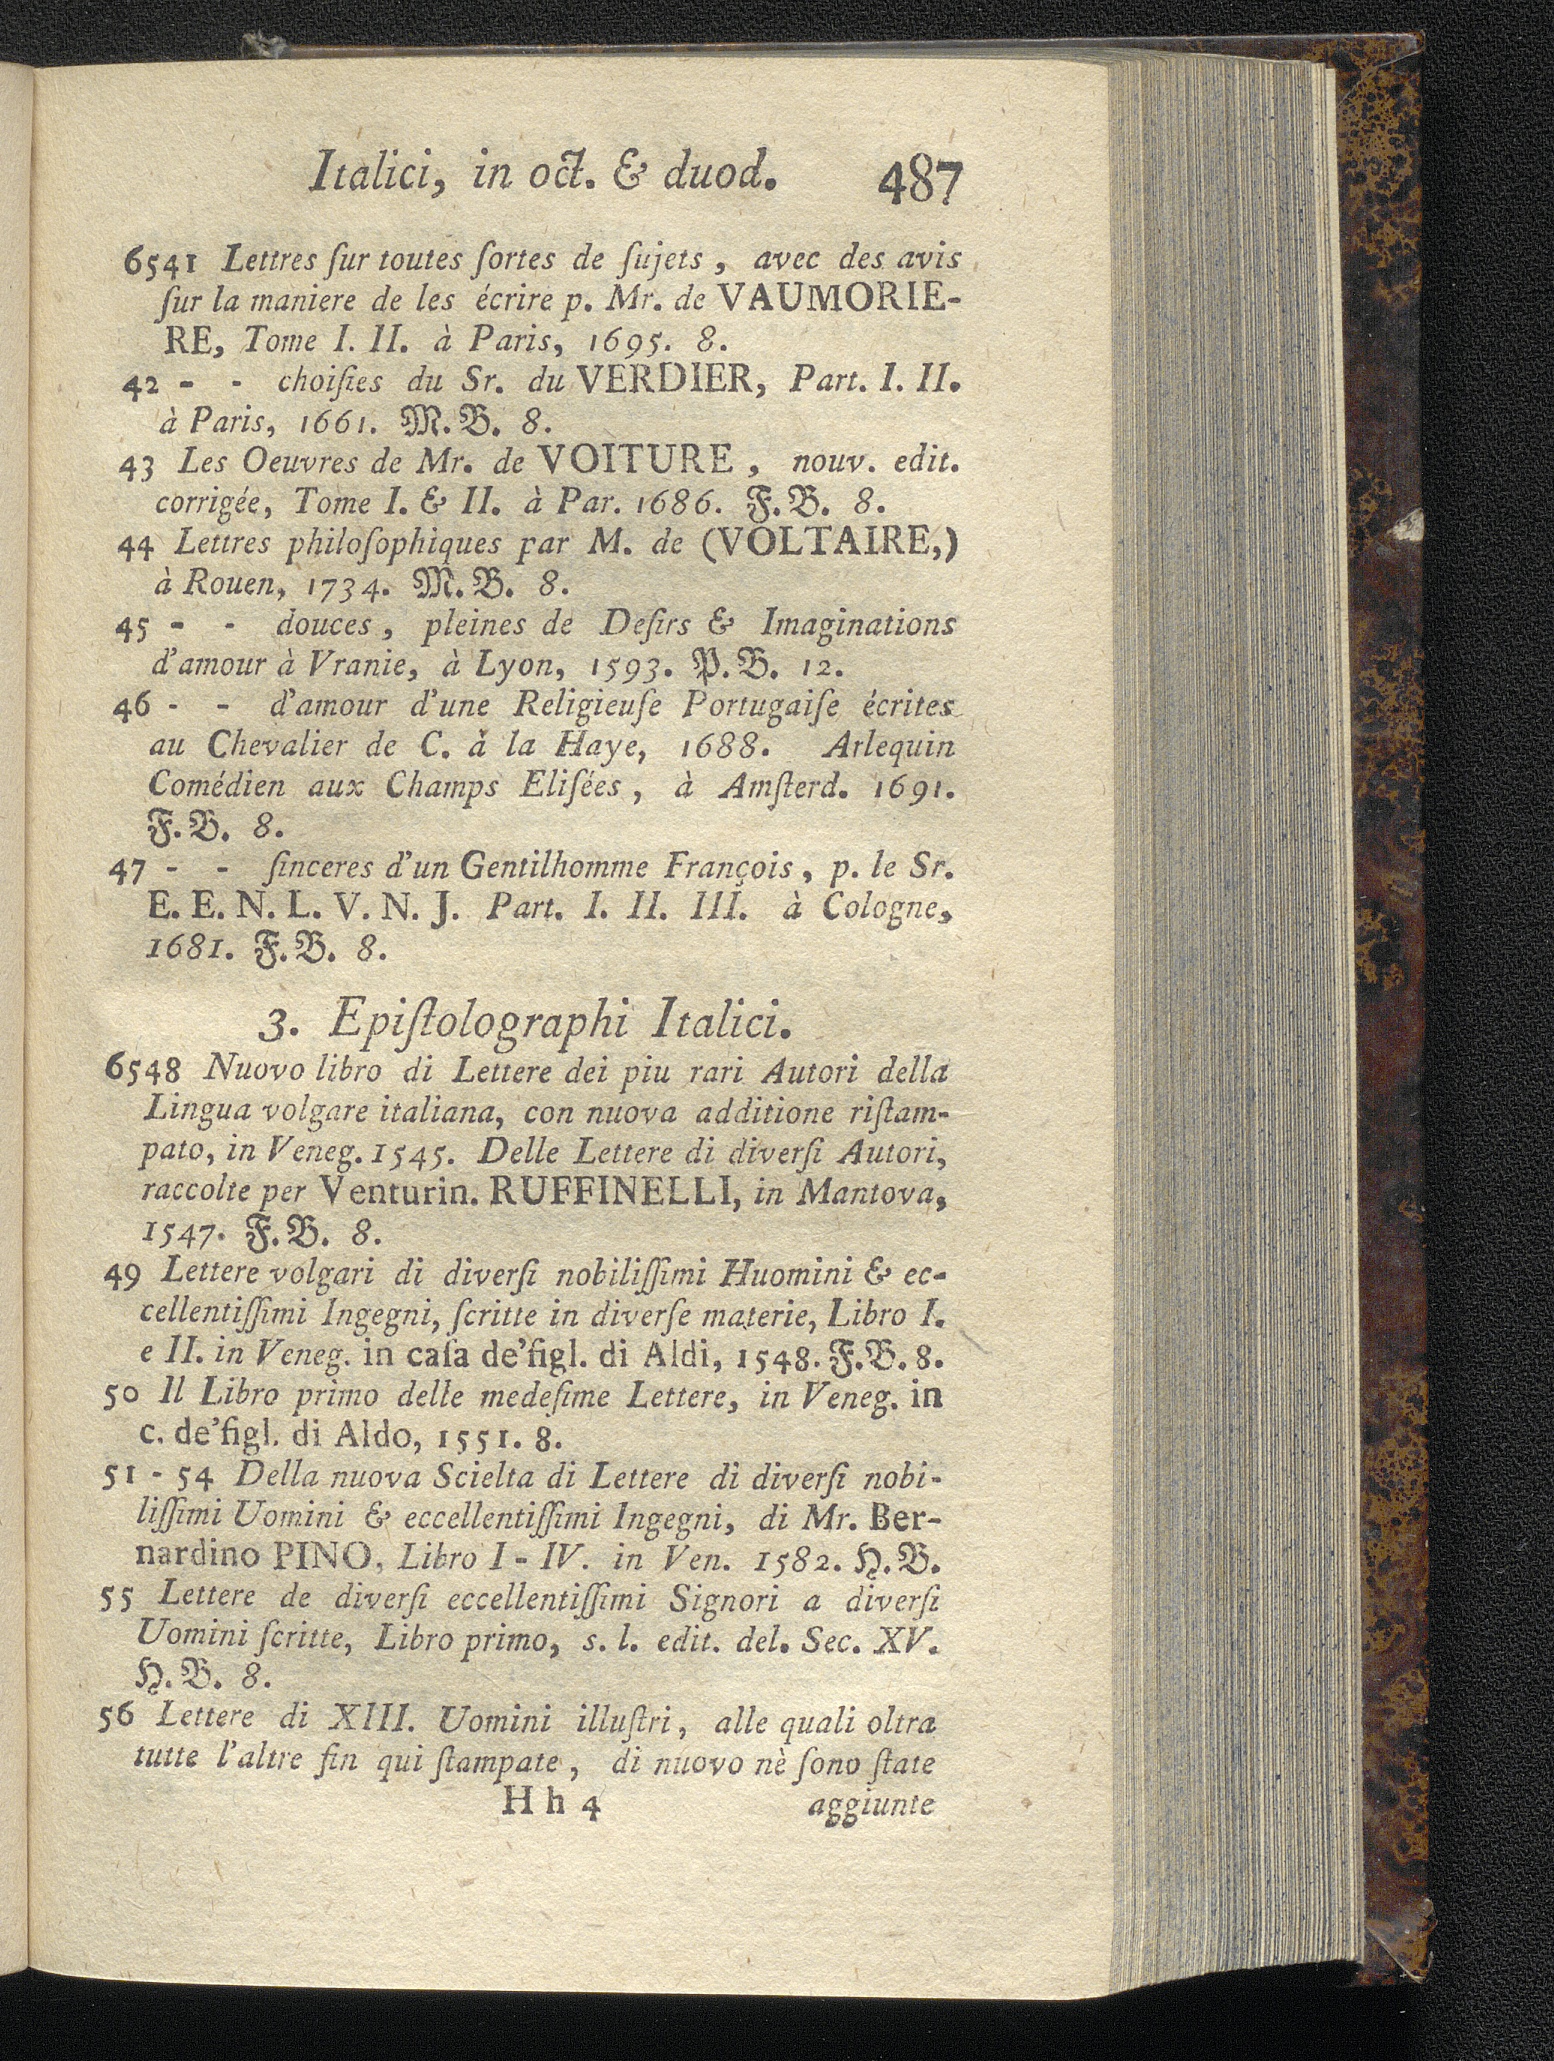 Italici, in oct. & duod. 487
6541 Lettres ſur toutes ſortes de ſujets, avec des avis
ſur la maniere de les écrire p. Mr. de VAUMORIE-
RE, Tome I. II. à Paris, 1695. 8.
42 - - choiſies du Sr. du VERDIER, Part. I. II.
à Paris, 1661. M. B. 8.
43 Les Oeuvres de Mr. de VOITURE, nouv. edit.
corrigée, Tome I. & II. à Par. 1686. F. B. 8.
44 Lettres philoſophiques par M. de (VOLTAIRE,)
à Rouen, 1734. M. B. 8.
45 - - douces, pleines de Deſirs & Imaginations
d'amour à Vranie, à Lyon, 1593. P. B. 12.
46 - - d'amour d'une Religieuſe Portugaiſe écrites
au Chevalier de C. à la Haye, 1688. Arlequin
Comédien aux Champs Eliſées, à Amſterd. 1691.
F. B. 8.
47 - - ſinceres d'un Gentilhomme François, p. le Sr.
E. E. N. L. V. N. J. Part. I. II. III. à Cologne,
1681. F. B. 8.
3. Epiſtolographi Italici.
6548 Nuovo libro di Lettere dei piu rari Autori della
Lingua volgare italiana, con nuova additione riſtam-
pato, in Veneg. 1545. Delle Lettere di diverſi Autori,
raccolte per Venturin. RUFFINELLI, in Mantova,
1547. F. B. 8.
49 Lettere volgari di diverſi nobiliſſimi Huomini & ec-
cellentiſſimi Ingegni, ſcritte in diverſe materie, Libro I.
e II. in Veneg. in caſa de'figl. di Aldi, 1548. F. B. 8.
50 Il Libro primo delle medeſime Lettere, in Veneg. in
c. de'figl. di Aldo, 1551. 8.
51 - 54 Della nuova Scielta di Lettere di diverſi nobi-
liſſimi Uomini & eccellentiſſimi Ingegni, di Mr. Ber-
nardino PINO, Libro I - IV. in Ven. 1582. H. B.
55 Lettere de diverſi eccellentiſſimi Signori a diverſi
Uomini ſcritte, Libro primo, s. l. edit. del. Sec. XV.
H. B. 8.
56 Lettere di XIII. Uomini illuſtri, alle quali oltra
tutte l'altre fin qui ſtampate, di nuovo nè ſono ſtate
H h 4 aggiunte